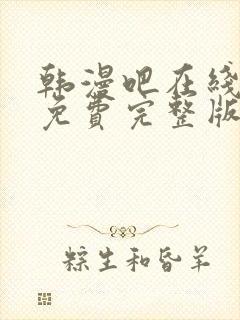 韩漫吧在线
免費完整版
粽生和昏羊